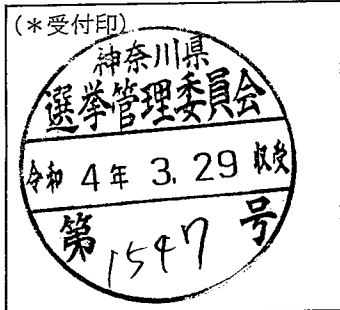 (＊受付印)
神奈川県
選挙管理委員会
令和 4年 3.29 収受
第 1547 号